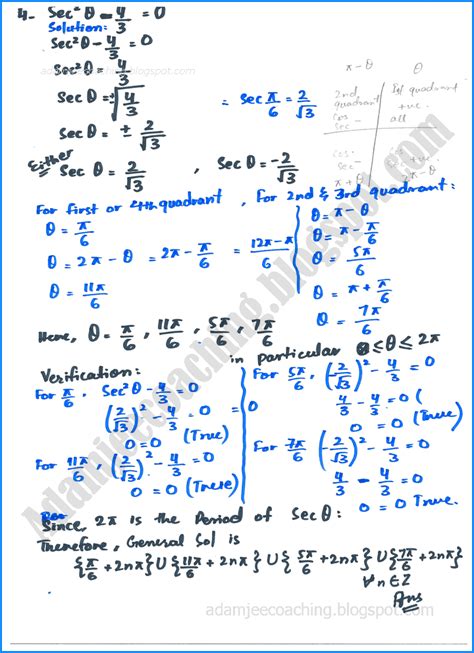 4. Sec² θ - 4/3 = 0
Solution:
Sec² θ - 4/3 = 0
Sec² θ = 4/3
adamjeecoaching.blogspot.com
Sec θ = ±√4/3 = Sec π/6 = 2/√3
Sec θ = ± 2/√3
π - θ
2nd quadrant
Ist quadrant
+ve
all
cos -
Sec -
cos -
Sec -
π + θ
cos +
Sec +ve
Either
Sec θ = 2/√3 , Sec θ = -2/√3
For first or 4th quadrant , For 2nd & 3rd quadrant:
θ = π/6
θ = 2π - θ = 2π - π/6 = 12π - π/6
θ = 11π/6
θ = π - θ
θ = π - π/6
θ = 5π/6
θ = π + π/6
θ = 7π/6
Here, θ = π/6 , 11π/6 , 5π/6 , 7π/6
in particular 0 ≤ θ ≤ 2π
Verification:
For π/6 , Sec² θ - 4/3 = 0
(2/√3)² - 4/3 = 0
0 = 0 (True)
For 11π/6 , (2/√3)² - 4/3 = 0
0 = 0 (True)
For 5π/6 , (2/√3)² - 4/3 = 0
4/3 - 4/3 = 0 (
0 = 0 (True)
For 7π/6 (-2/√3)² - 4/3 = 0
4/3 - 4/3 = 0
0 = 0 True.
Since, 2π is the Period of Sec θ:
Therefore, General Sol is
{π/6 + 2nπ} U {11π/6 + 2nπ} U {5π/6 + 2nπ} U {7π/6 + 2nπ}
∀ n ∈ Z
Ans
adamjeecoaching.blogspot.com
Adamjeecoaching.blogspot.com